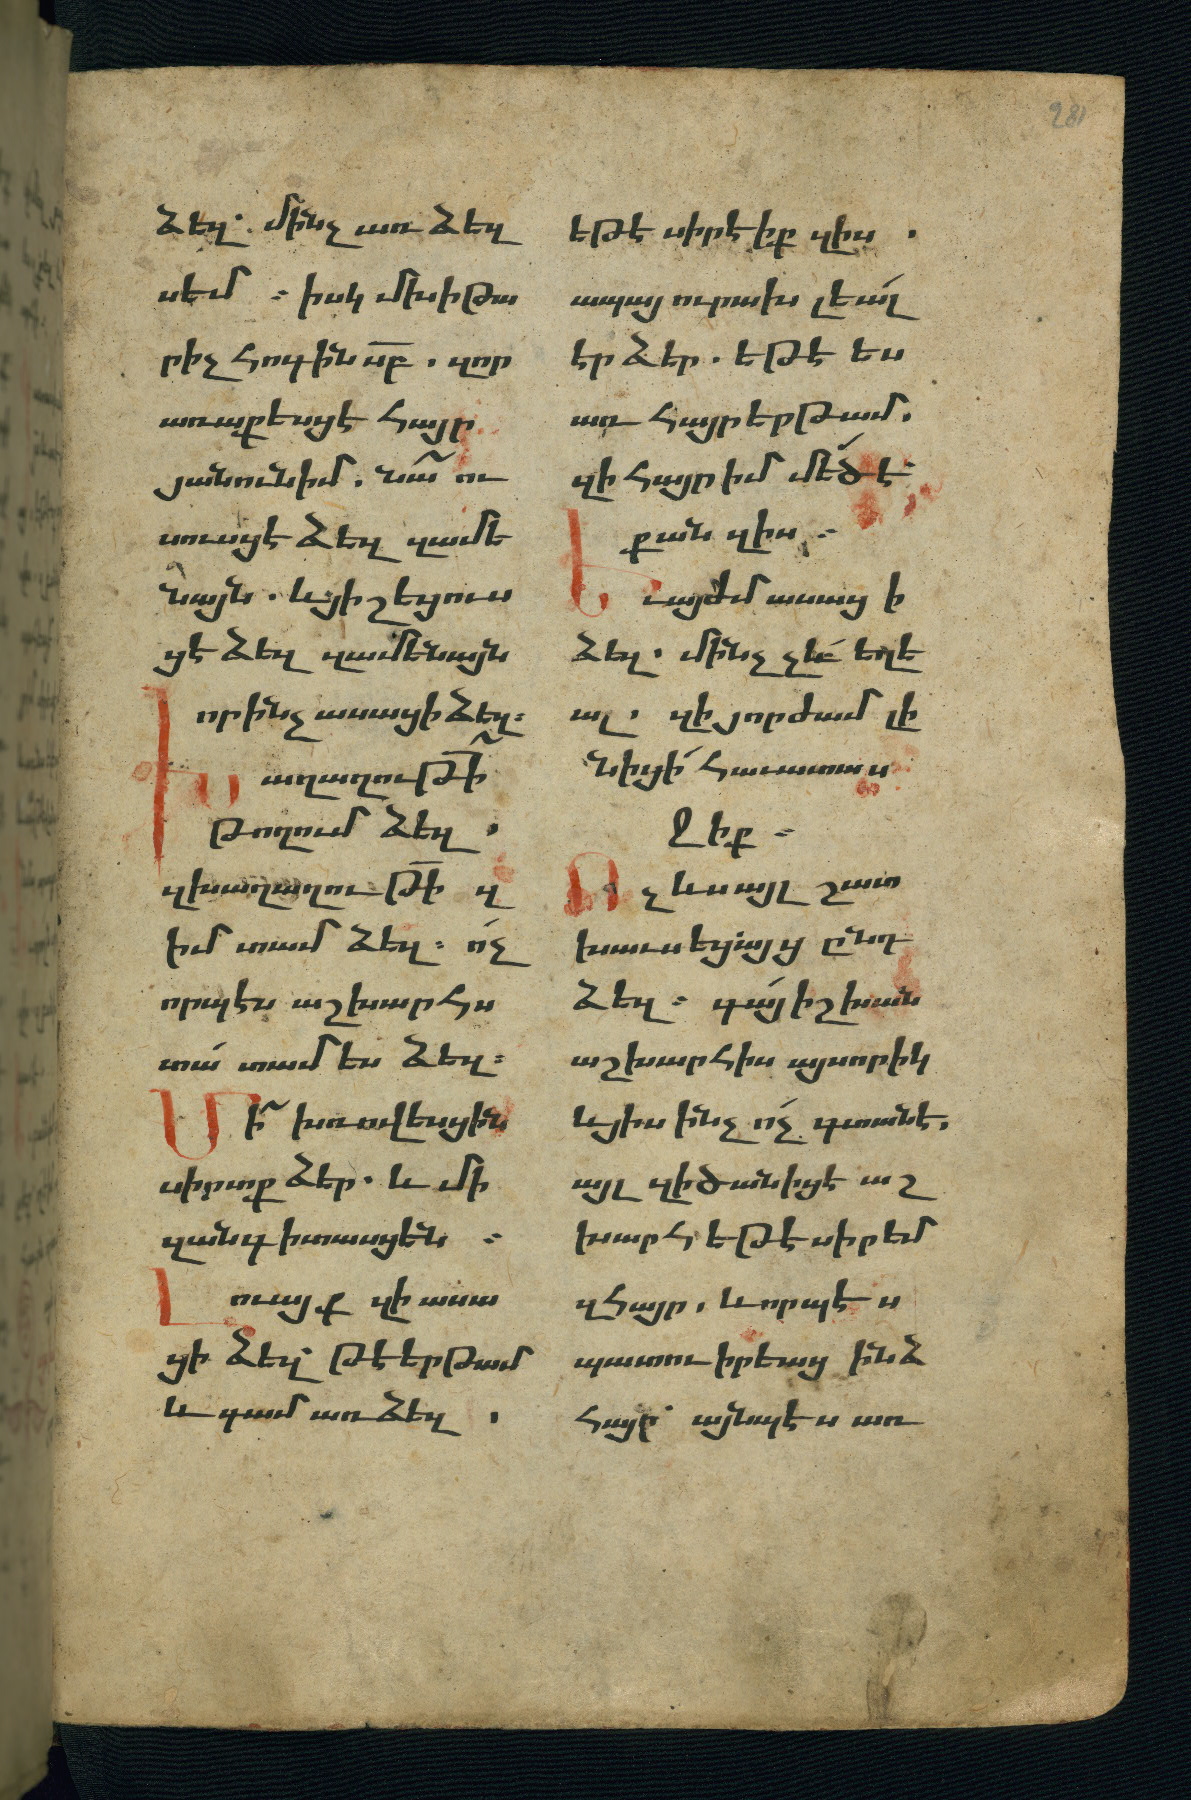 ձեզ՝. մինչ առ ձեզ
սեմ ։ իսկ մխիթա
րիչ հոգին սբ̅. զոր
առաքեսցէ հայր
յանունիմ. նա՜ ու
սուսցէ ձեզ զամե
նայն. և յիշեցուս
ցէ ձեզ զամենայն
որինչ ասացի ձեզ։
Խաղաղութի̅՜
թողում ձեզ.
զխաղաղութի̅ զ
իմ տամ ձեզ։ ո՛չ
որպէս աշխարհս
տա՛ տամ ես ձեզ։
Մի՜ խռովեսցին
սիրտք ձեր. և մի
զանգիտասցեն ։
Լուայք զի ասա
ցի ձեզ՝ թէ երթամ
և գամ առ ձեզ.
281
եթէ սիրէիք զիս.
ապայ ուրախ լեա՛լ
էր ձեր. եթէ ես
առ հայր երթամ.
զի հայր իմ մե՛ծ է՝
քան զիս ։
Եւ այժմ ասացի
ձեզ. մինչ չև՛ եղե
ալ. զի յորժամ լի
նիցի՛ հաւատաս
ջիք ։
Ոչ ևս այլ շատ
խաւսեցայց ընդ
ձեզ ։ գա՛յ իշխան
աշխարհիս այսորիկ
և յիս ինչ ո՛չ գտանէ.
այլ զի ծանիցէ աշ
խարհ եթէ սիրեմ
զհայր. և որպէս
պատուիրեաց ինձ
հայր՝ այնպէս առ